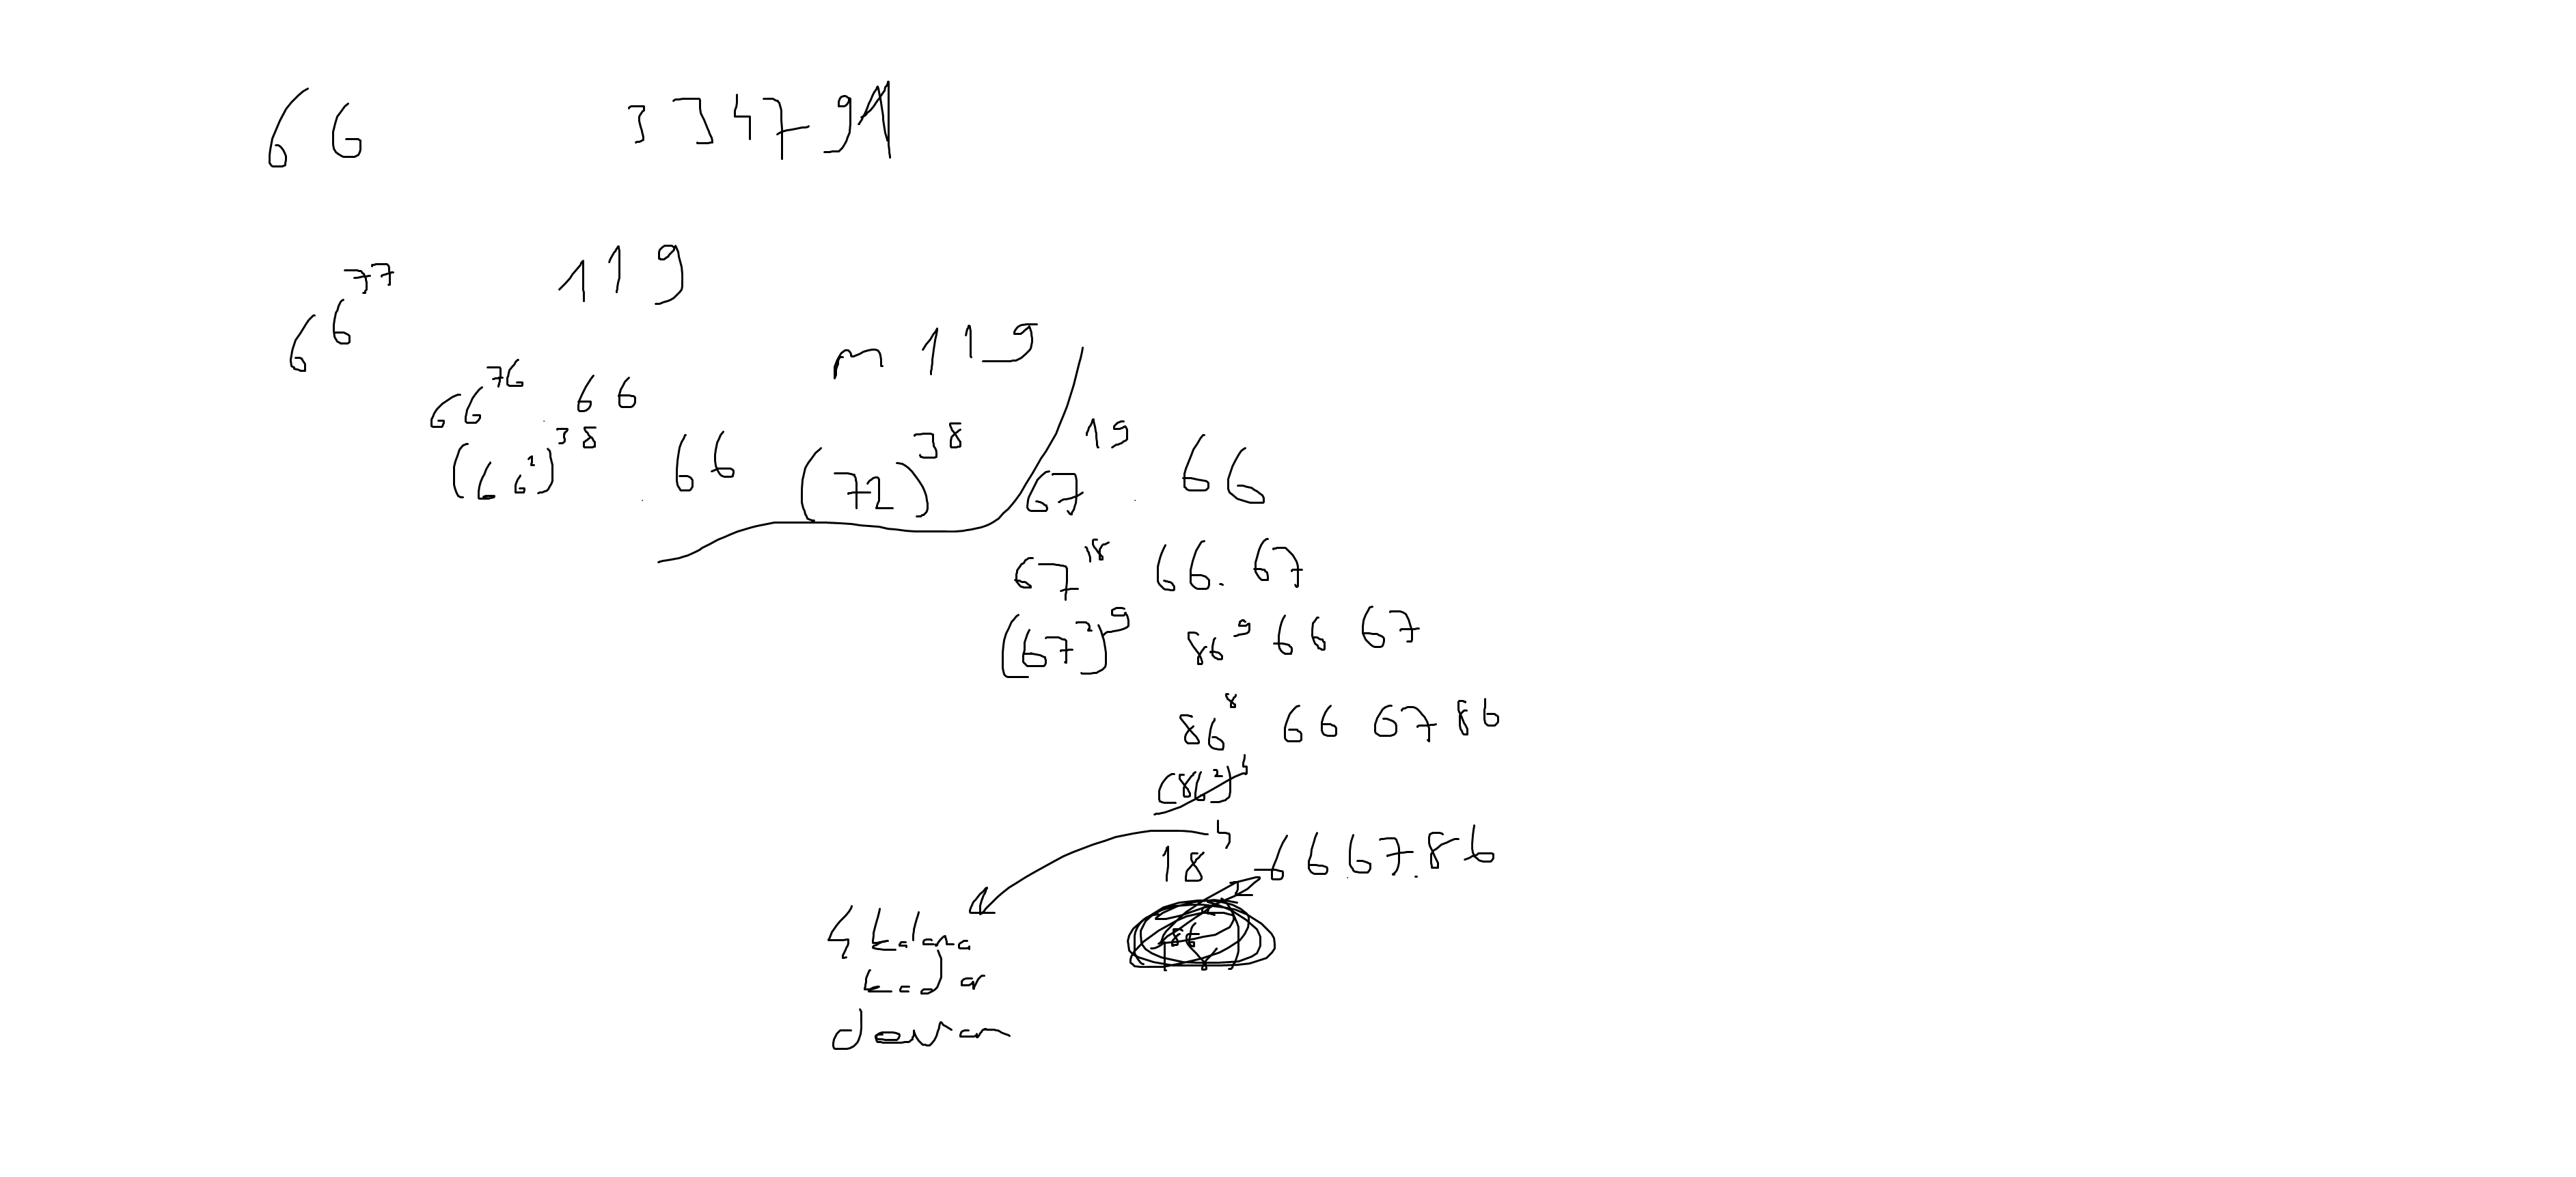 66 334791
66^77 119
m 119
66^76 . 66
(66^2)^38 . 66 (72)^38 67^19 . 66
67^18 66.67
(67^2)^9 86^9 66 67
86^8 66 67 86
(86^2)^4
18^4 66.67.86
4 kalana
kadar
devam